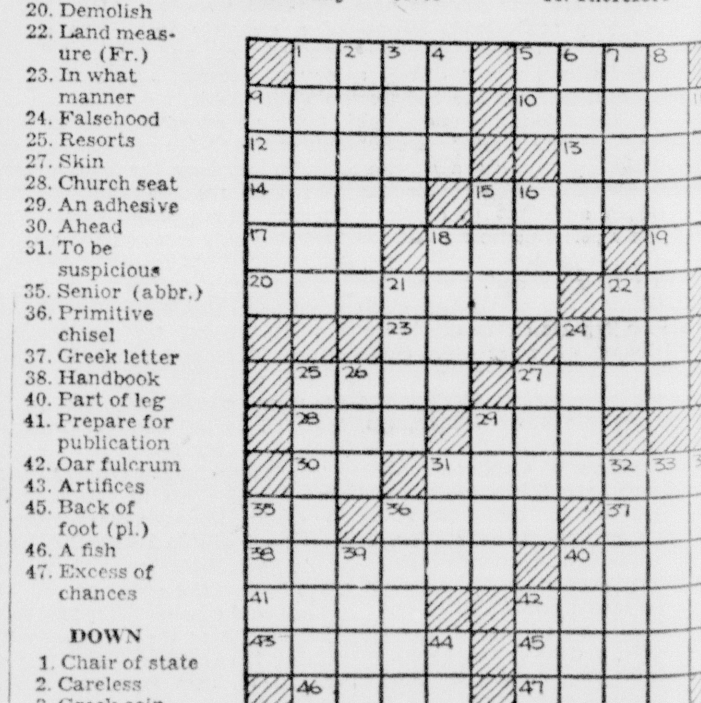 20. Demolish
22. Land meas-
ure (Fr.)
23. In what
manner
24. Falsehood
25. Resorts
27. Skin
28. Church seat
29. An adhesive
30. Ahead
31. To be
suspicious
35. Senior (abbr.)
36. Primitive
chisel
37. Greek letter
38. Handbook
40. Part of leg
41. Prepare for
publication
42. Oar fulcrum
43. Artifices
45. Back of
foot (pl.)
46. A fish
47. Excess of
chances
DOWN
1. Chair of state
2. Careless
1 2 3 4 5 6 7 8
9 10
12 13
14 15 16
17 18 19
20 21 22
23 24
25 26 27
28 29
30 31 32 33
35 36 37
38 39 40
41 42
43 44 45
46 47